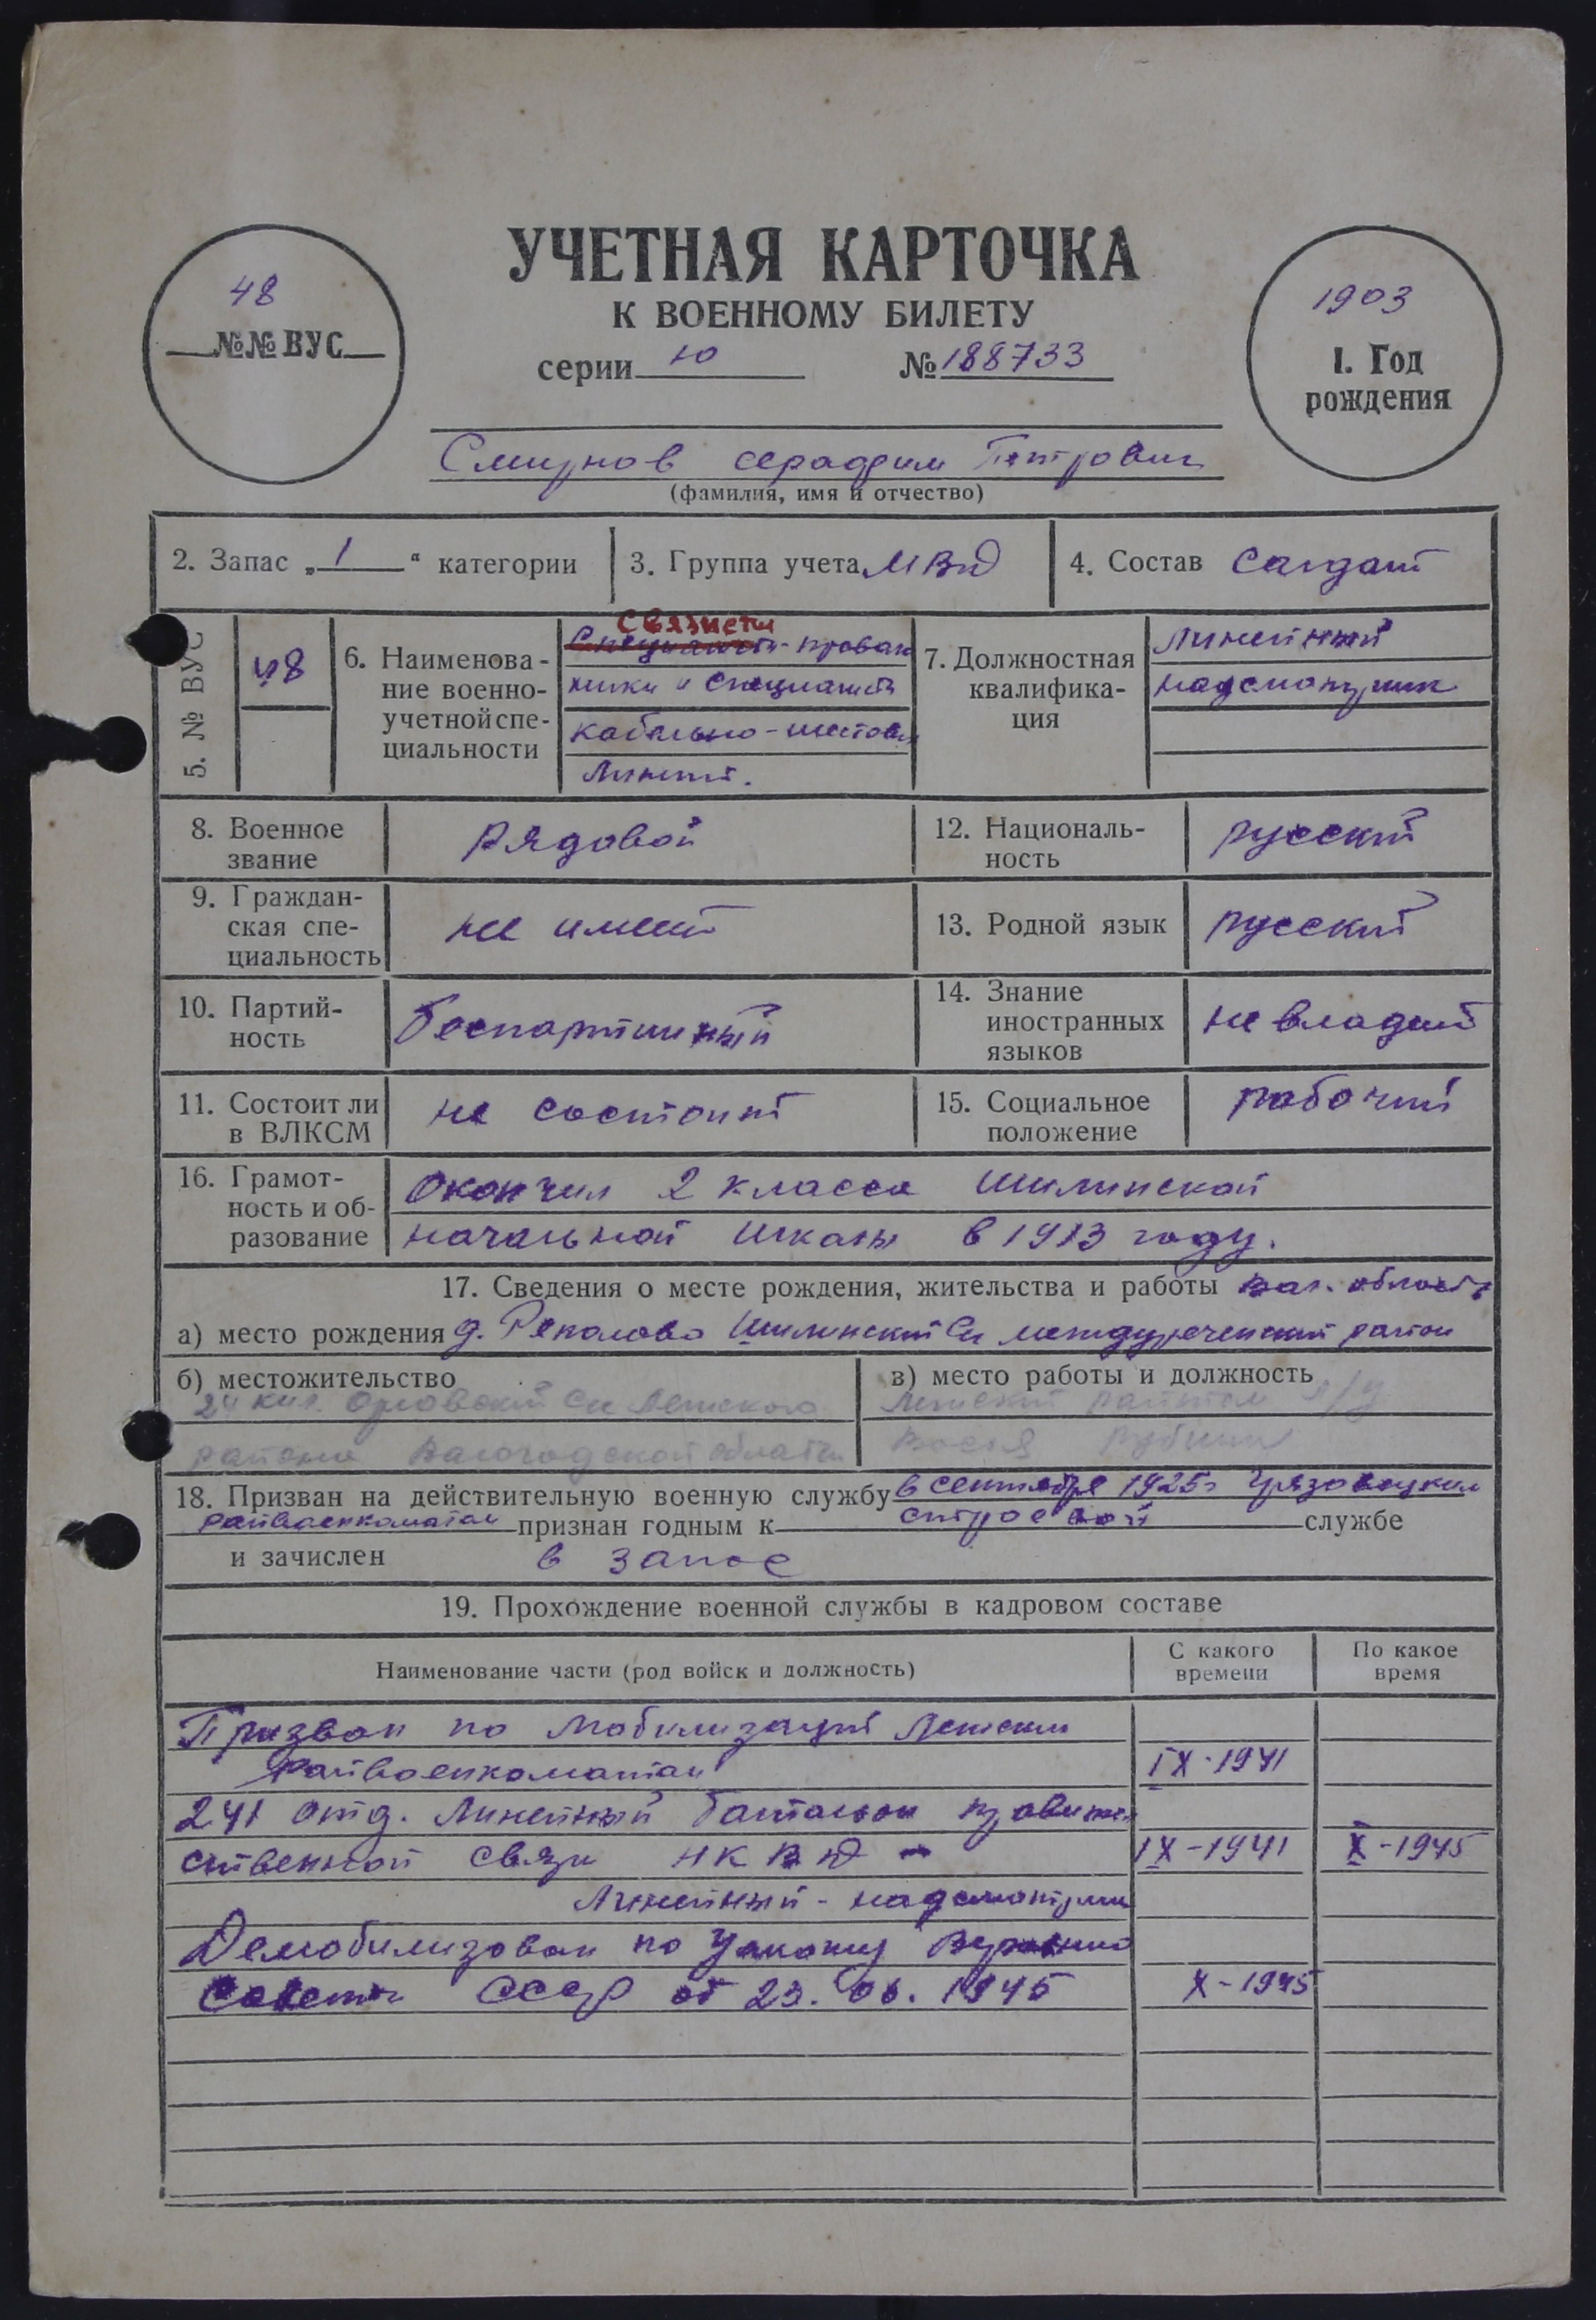 УЧЕТНАЯ КАРТОЧКА
К ВОЕННОМУ БИЛЕТУ
48
№№ ВУС
серии Ю № 188733
1903
1. Год
рождения
Смирнов серафим Петрович
(фамилия, имя и отчество)
2. Запас „1“ категории
3. Группа учета МВД
4. Состав Солдат
5. № ВУС
48
6. Наименова-
ние военно-
учетной спе-
циальности
связисты
Специалисты-провод
ники и специалисты
кабельно-шестовых
линий.
7. Должностная
квалифика-
ция
Линейный
надсмотрщик
8. Военное
звание
Рядовой
12. Националь-
ность
русский
9. Граждан-
ская спе-
циальность
не имеет
13. Родной язык
русский
10. Партий-
ность
беспартийный
14. Знание
иностранных
языков
не владеет
11. Состоит ли
в ВЛКСМ
не состоит
15. Социальное
положение
рабочий
16. Грамот-
ность и об-
разование
Окончил 2 класса Шилинской
начальной школы в 1913 году.
17. Сведения о месте рождения, жительства и работы Вол. область
а) место рождения д. Реполово Шилинский с/с междуреченский район
б) местожительство
24 кил. Орловский с/с Лежского
района Вологодской области
в) место работы и должность
Лежский райтоп
18. Призван на действительную военную службу в сентябре 1925г Грязовецким
райвоенкоматом признан годным к строевой службе
и зачислен в запас
19. Прохождение военной службы в кадровом составе
Наименование части (род войск и должность)
С какого
времени
По какое
время
Призван по мобилизаций Лежским
райвоенкоматом IX-1941
241 отд. Линейный батальон правитель
ственной связи НКВД - IX-1941 X-1945
Линейный-надсмотрщик
Демобилизован по Указу Верховно
Совета СССР от 23.06.1945 X-1945